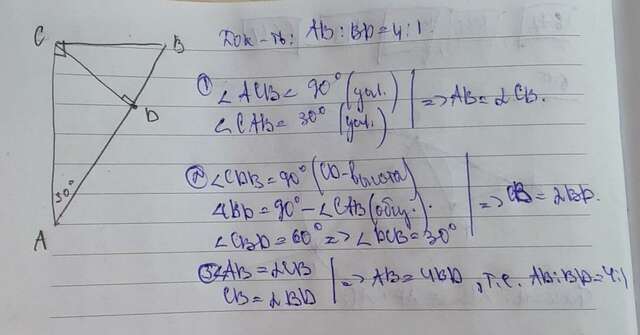 Док-ть: AB:BD=4:1.
C
B
D
30°
A
① ∠ACB < 90° (усл.)
∠CAB = 30° (усл.)
=> AB = 2CB.
② ∠CDB = 90° (CD-высота)
∠CBD = 90° - ∠CAB
∠CBD = 60° => ∠DCB = 30°
=> CB = 2BD.
③ AB = 2CB
CB = 2BD
=> AB = 4BD, т.е. AB:BD = 4:1